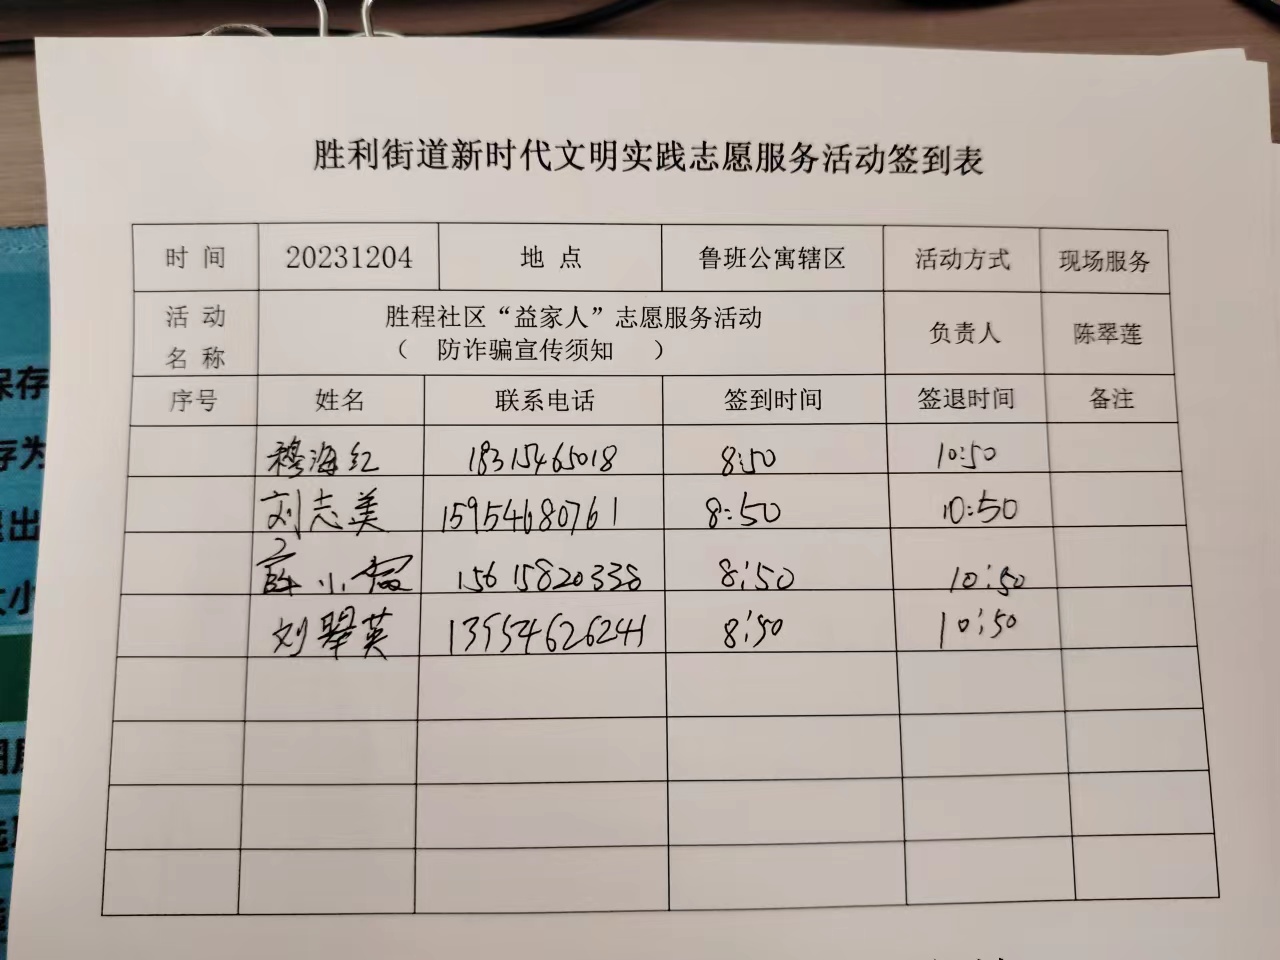 胜利街道新时代文明实践志愿服务活动签到表
时 间 20231204 地 点 鲁班公寓辖区 活动方式 现场服务
活 动 名 称 胜程社区“益家人”志愿服务活动 负责人 陈翠莲
（ 防诈骗宣传须知 ）
序号 姓名 联系电话 签到时间 签退时间 备注
穆海红 18315465018 8:50 10:50
刘志美 15954680761 8:50 10:50
薛小 15615820338 8:50 10:50
刘翠英 13954626241 8:50 10:50
保存
存为
出
大小